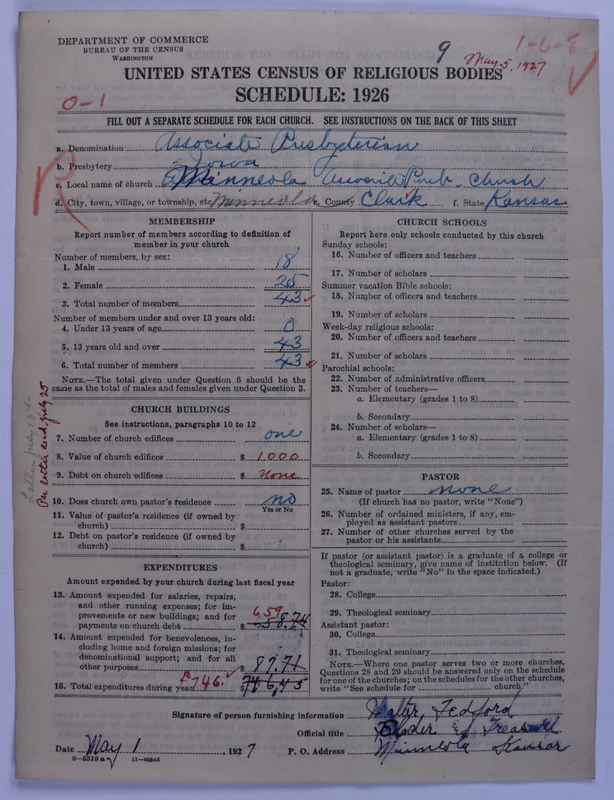 DEPARTMENT OF COMMERCE
BUREAU OF THE CENSUS
WASHINGTON
9
1-6-8
May 5, 1927
UNITED STATES CENSUS OF RELIGIOUS BODIES
SCHEDULE: 1926
0-1
FILL OUT A SEPARATE SCHEDULE FOR EACH CHURCH. SEE INSTRUCTIONS ON THE BACK OF THIS SHEET
a. Denomination Associate Presbyterian
b. Presbytery Iowa
c. Local name of church Minneola Church
d. City, town, village, or township, etc. Minneola e. County Clark f. State Kansas
MEMBERSHIP
Report number of members according to definition of
member in your church
Number of members, by sex:
1. Male 18
2. Female 25
3. Total number of members 43
Number of members under and over 13 years old:
4. Under 13 years of age 0
5. 13 years old and over 43
6. Total number of members 43
NOTE.—The total given under Question 6 should be the
same as the total of males and females given under Question 3.
CHURCH BUILDINGS
See instructions, paragraphs 10 to 12
7. Number of church edifices one
8. Value of church edifices $ 1000
9. Debt on church edifices $ None
10. Does church own pastor's residence no
Yes or No
11. Value of pastor's residence (if owned by
church) $
12. Debt on pastor's residence (if owned by
church) $
EXPENDITURES
Amount expended by your church during last fiscal year
13. Amount expended for salaries, repairs,
and other running expenses; for im-
provements or new buildings; and for
payments on church debt $ 659
658.74
14. Amount expended for benevolences, in-
cluding home and foreign missions; for
denominational support; and for all
other purposes $ 87.71
15. Total expenditures during year $746. 746.45
CHURCH SCHOOLS
Report here only schools conducted by this church
Sunday schools:
16. Number of officers and teachers
17. Number of scholars
Summer vacation Bible schools:
18. Number of officers and teachers
19. Number of scholars
Week-day religious schools:
20. Number of officers and teachers
21. Number of scholars
Parochial schools:
22. Number of administrative officers
23. Number of teachers—
a. Elementary (grades 1 to 8)
b. Secondary
24. Number of scholars—
a. Elementary (grades 1 to 8)
b. Secondary
PASTOR
25. Name of pastor none
(If church has no pastor, write "None")
26. Number of ordained ministers, if any, em-
ployed as assistant pastors
27. Number of other churches served by the
pastor or his assistants
If pastor (or assistant pastor) is a graduate of a college or
theological seminary, give name of institution below. (If
not a graduate, write "No" in the space indicated.)
Pastor:
28. College
29. Theological seminary
Assistant pastor:
30. College
31. Theological seminary
NOTE.—Where one pastor serves two or more churches,
Questions 28 and 29 should be answered only on the schedule
for one of the churches; on the schedules for the other churches,
write "See schedule for church."
Signature of person furnishing information Walter Tedford
Official title Elder &
Date May 1, 1927 P. O. Address Minneola Kansas
8-5518a 11-9
Per letter recd. July 25